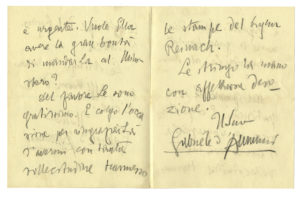 è urgente. Vuole Ella
avere la gran bontà
di mandarla al
Del favore Le sono
gratissimo. E colgo l'occa
sione per ringraziarLa
d'avermi con tanta
sollecitudine
le stampe del
Reinach.
Le stringo la mano
con affettuosa devo
zione.
Il Suo
Gabriele d'Annunzio